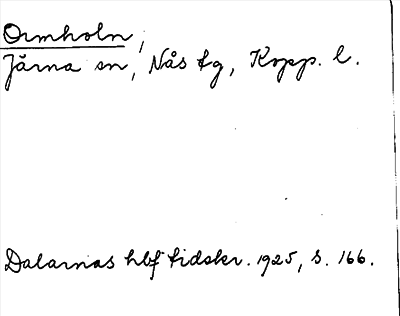 Ormholn,
Järna sn, Nås tg, Kopp. l.
Dalarnas hbf tidskr. 1925, s. 166.